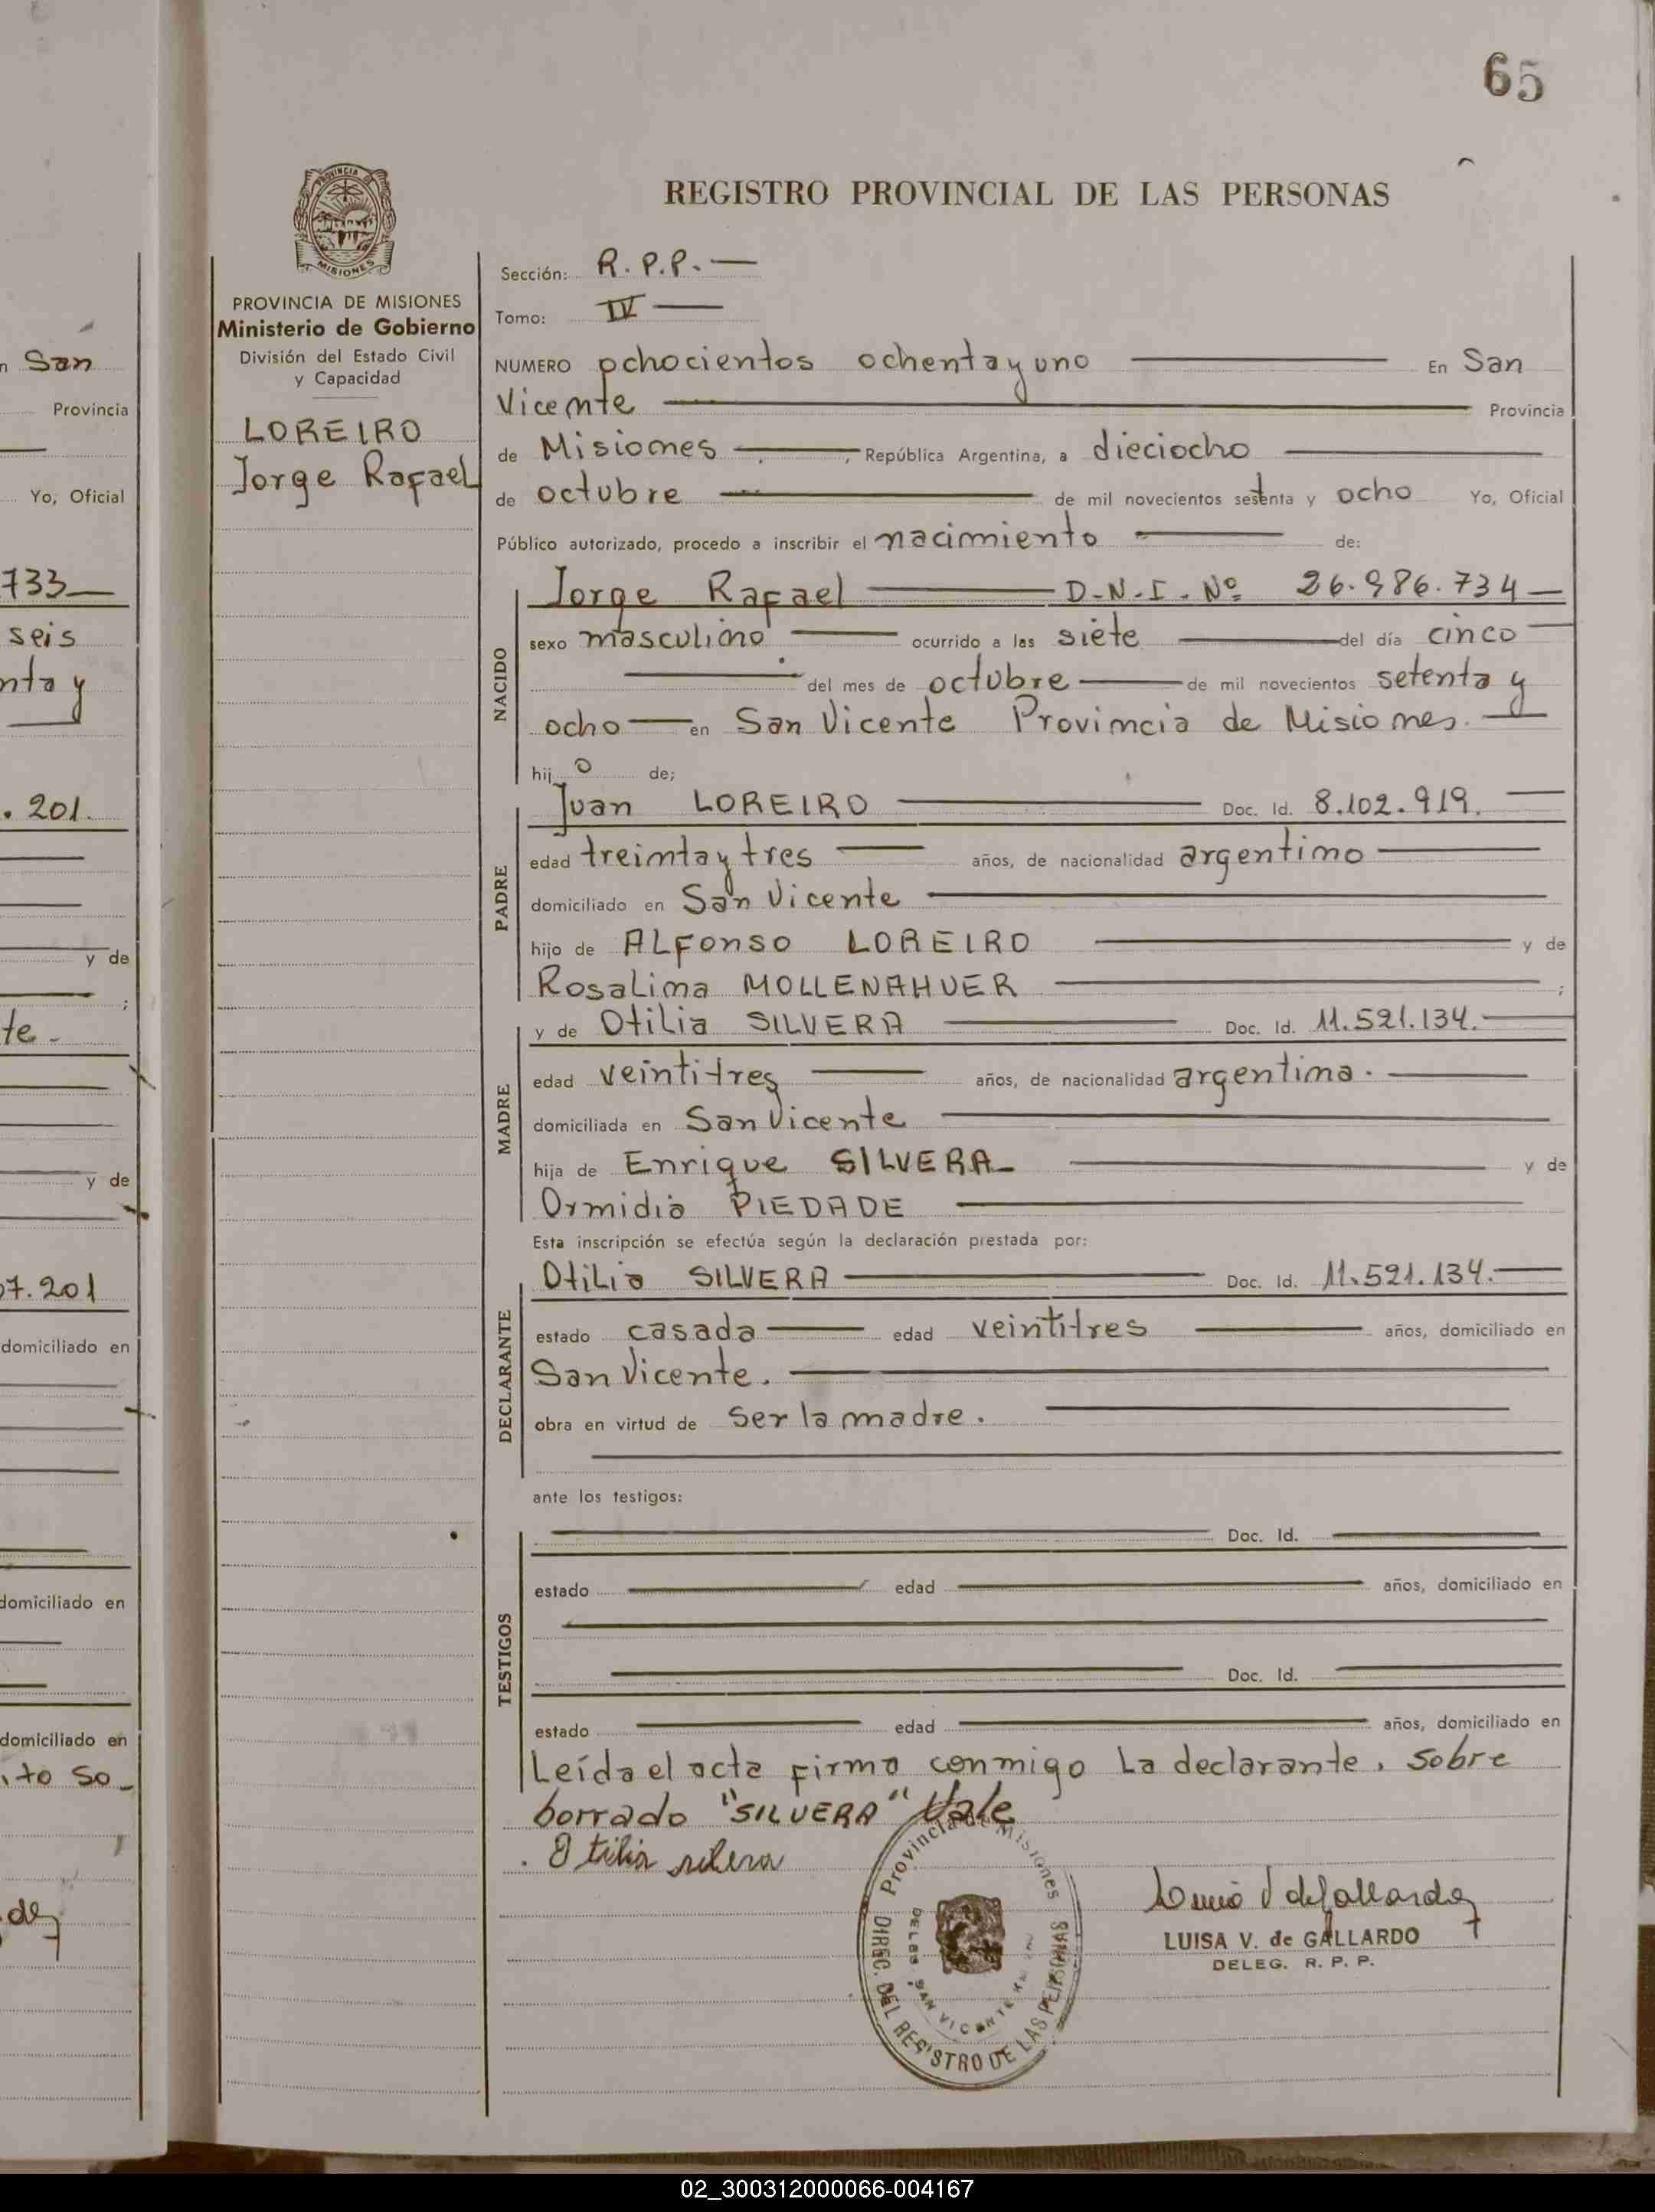 65
REGISTRO PROVINCIAL DE LAS PERSONAS
PROVINCIA DE
MISIONES
PROVINCIA DE MISIONES
Ministerio de Gobierno
División del Estado Civil
y Capacidad
LOREIRO
Jorge Rafael
Sección: R.P.P.
Tomo: IV
NUMERO ochocientos ochenta y uno En San
Vicente Provincia
de Misiones, República Argentina, a dieciocho
de octubre de mil novecientos setenta y ocho Yo, Oficial
Público autorizado, procedo a inscribir el nacimiento de:
NACIDO
Jorge Rafael D.N.I. Nº 26.986.734
sexo masculino ocurrido a las siete del día cinco
del mes de octubre de mil novecientos setenta y
ocho en San Vicente Provincia de Misiones.
hijo de;
PADRE
Juan LOREIRO Doc. Id. 8.102.919.
edad treinta y tres años, de nacionalidad argentino
domiciliado en San Vicente
hijo de ALFonso LOREIRO y de
Rosalina MOLLENAHUER ;
MADRE
y de Otilia SILVERA Doc. Id. 11.521.134.
edad veintitres años, de nacionalidad argentina.
domiciliada en San Vicente
hija de Enrique SILVERA y de
Ormidia PIEDADE
Esta inscripción se efectúa según la declaración prestada por:
DECLARANTE
Otilia SILVERA Doc. Id. 11.521.134.
estado casada edad veintitres años, domiciliado en
San Vicente.
obra en virtud de ser la madre.
ante los testigos:
TESTIGOS
Doc. Id.
estado edad años, domiciliado en
Doc. Id.
estado edad años, domiciliado en
Leída el acta firma conmigo la declarante. Sobre
borrado "SILVERA" Vale
Otilia silvera
Provincia de Misiones
DIREC. DEL REGISTRO DE LAS PERSONAS
DELEG. SAN VICENTE
LUISA V. de GALLARDO
DELEG. R. P. P.
n San
Provincia
Yo, Oficial
733
seis
nta y
. 201.
y de
;
te.
y de
07.201
domiciliado en
domiciliado en
domiciliado en
to so
02_300312000066-004167